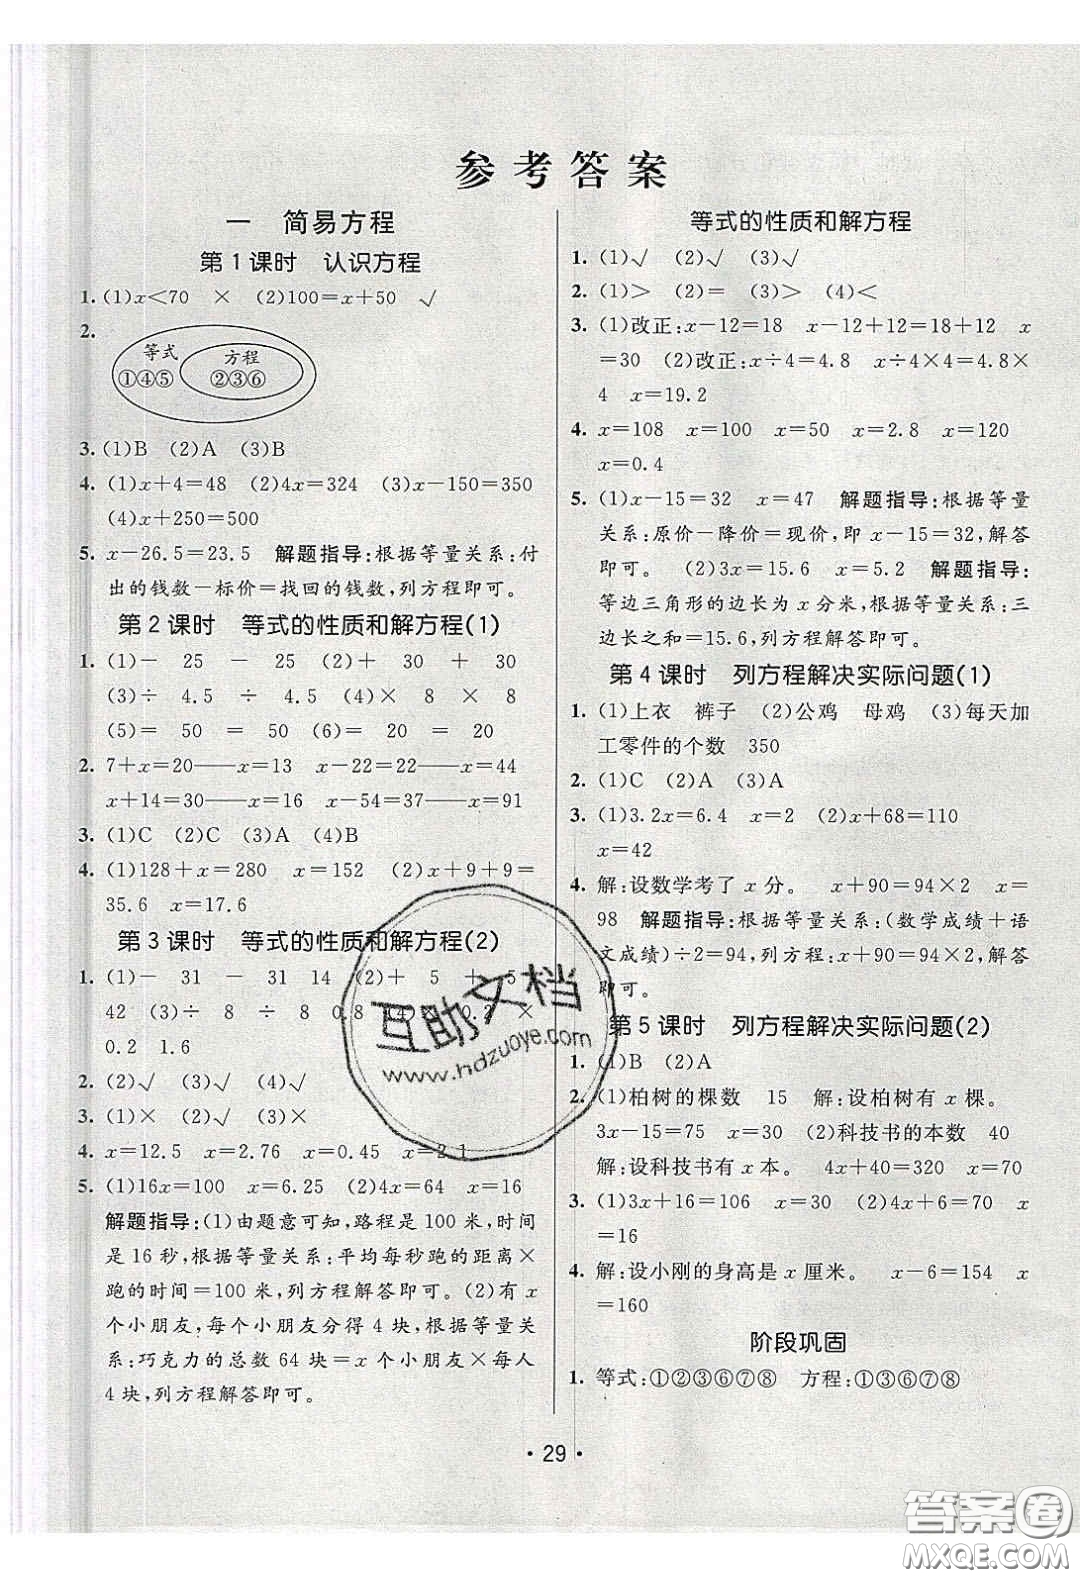 参考答案
一 简易方程
第1课时 认识方程
1. (1)x<70 × (2)100=x+50 √
2.
等式 方程
①④⑤ ②③⑥
3. (1)B (2)A (3)B
4. (1)x+4=48 (2)4x=324 (3)x-150=350
(4)x+250=500
5. x-26.5=23.5 解题指导:根据等量关系:付
出的钱数-标价=找回的钱数,列方程即可。
第2课时 等式的性质和解方程(1)
1. (1)- 25 - 25 (2)+ 30 + 30
(3)÷ 4.5 ÷ 4.5 (4)× 8 × 8
(5)= 50 = 50 (6)= 20 = 20
2. 7+x=20——x=13 x-22=22——x=44
x+14=30——x=16 x-54=37——x=91
3. (1)C (2)C (3)A (4)B
4. (1)128+x=280 x=152 (2)x+9+9=
35.6 x=17.6
第3课时 等式的性质和解方程(2)
1. (1)- 31 - 31 14 (2)+ 5 + 5
42 (3)÷ 8 ÷ 8 0.8 (4)× 0.2 ×
0.2 1.6
2. (2)√ (3)√ (4)√
3. (1)× (2)√ (3)×
4. x=12.5 x=2.76 x=0.45 x=2.1
5. (1)16x=100 x=6.25 (2)4x=64 x=16
解题指导:(1)由题意可知,路程是100米,时间
是16秒,根据等量关系:平均每秒跑的距离×
跑的时间=100米,列方程解答即可。(2)有x
个小朋友,每个小朋友分得4块,根据等量关
系:巧克力的总数64块=x个小朋友×每人
4块,列方程解答即可。
等式的性质和解方程
1. (1)√ (2)√ (3)√
2. (1)> (2)= (3)> (4)<
3. (1)改正:x-12=18 x-12+12=18+12 x
=30 (2)改正:x÷4=4.8 x÷4×4=4.8×
4 x=19.2
4. x=108 x=100 x=50 x=2.8 x=120
x=0.4
5. (1)x-15=32 x=47 解题指导:根据等量
关系:原价-降价=现价,即x-15=32,解答
即可。 (2)3x=15.6 x=5.2 解题指导:
等边三角形的边长为x分米,根据等量关系:三
边长之和=15.6,列方程解答即可。
第4课时 列方程解决实际问题(1)
1. (1)上衣 裤子 (2)公鸡 母鸡 (3)每天加
工零件的个数 350
2. (1)C (2)A (3)A
3. (1)3.2x=6.4 x=2 (2)x+68=110
x=42
4. 解:设数学考了x分。 x+90=94×2 x=
98 解题指导:根据等量关系:(数学成绩+语
文成绩)÷2=94,列方程:x+90=94×2,解答
即可。
第5课时 列方程解决实际问题(2)
1. (1)B (2)A
2. (1)柏树的棵数 15 解:设柏树有x棵。
3x-15=75 x=30 (2)科技书的本数 40
解:设科技书有x本。 4x+40=320 x=70
3. (1)3x+16=106 x=30 (2)4x+6=70 x
=16
4. 解:设小刚的身高是x厘米。 x-6=154 x
=160
阶段巩固
1. 等式:①②③⑥⑦⑧ 方程:①③⑥⑦⑧
· 29 ·
互助文档
www.hdzuoye.com
答案圈
MXQE.COM